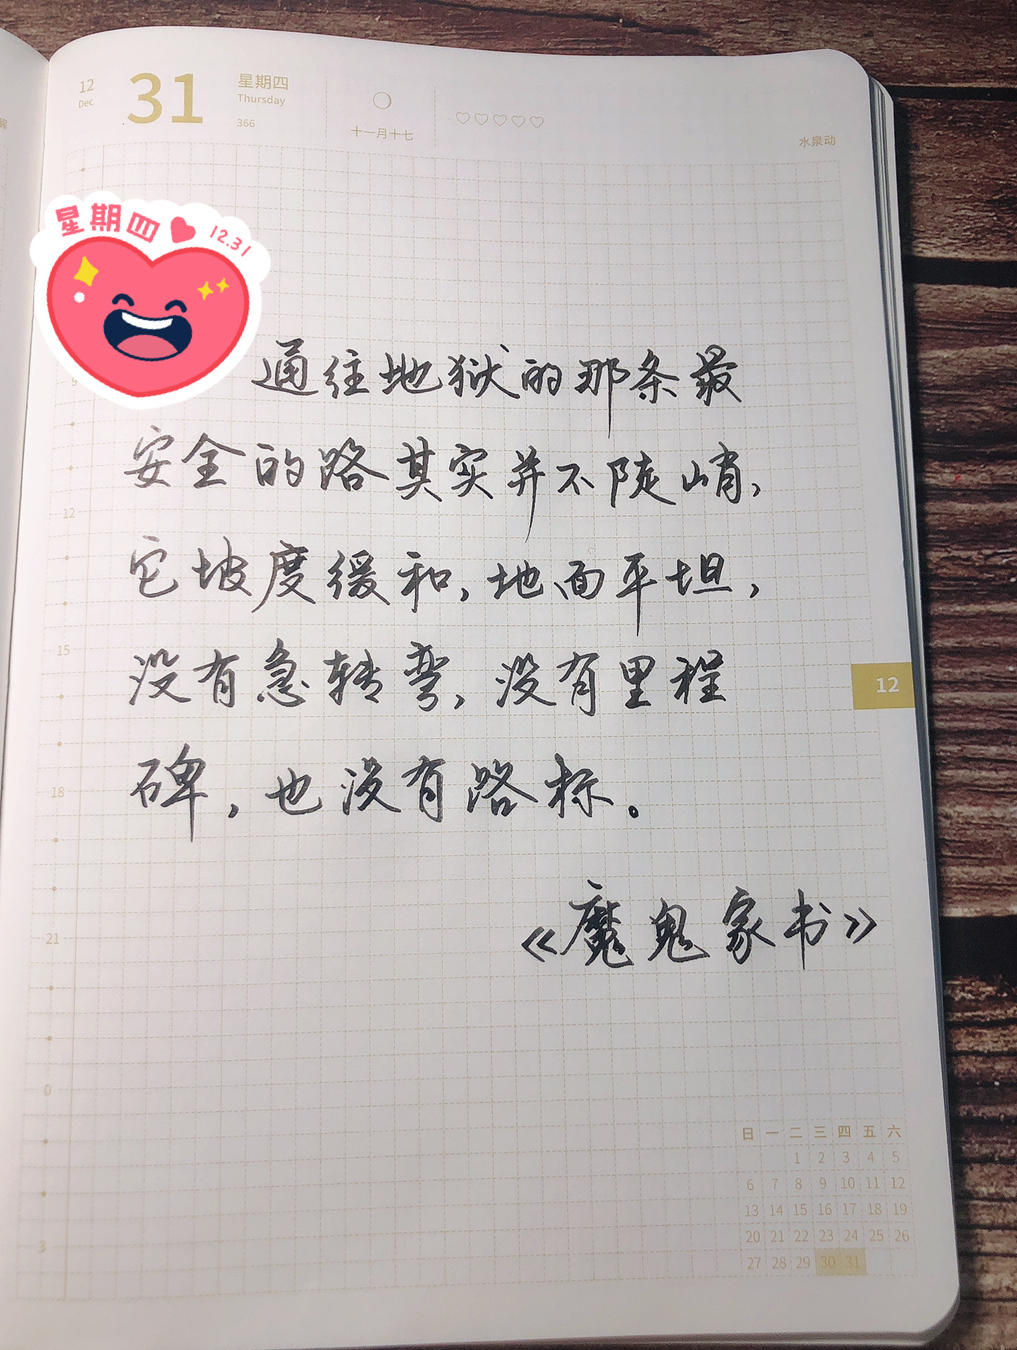 12
Dec
31
星期四
Thursday
366
十一月十七
水泉动
星期四
12.31
通往地狱的那条最
安全的路其实并不陡峭，
它坡度缓和，地面平坦，
没有急转弯，没有里程
碑，也没有路标。
《魔鬼家书》
9
12
15
18
21
0
3
12
日 一 二 三 四 五 六
1 2 3 4 5
6 7 8 9 10 11 12
13 14 15 16 17 18 19
20 21 22 23 24 25 26
27 28 29 30 31